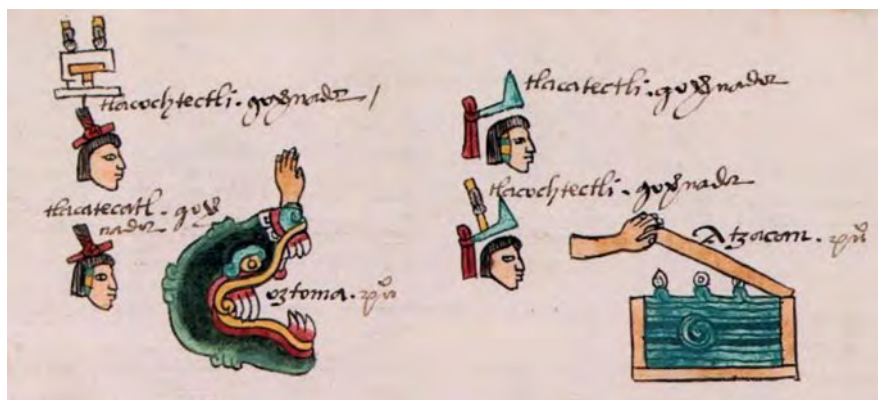 tlacochtectli. goꝟnador /
tlacatecatl. goꝟ
nador
oztoma. puº
tlacatectli. goꝟnador
tlacochtectli. goꝟnador
Atzacan. puº